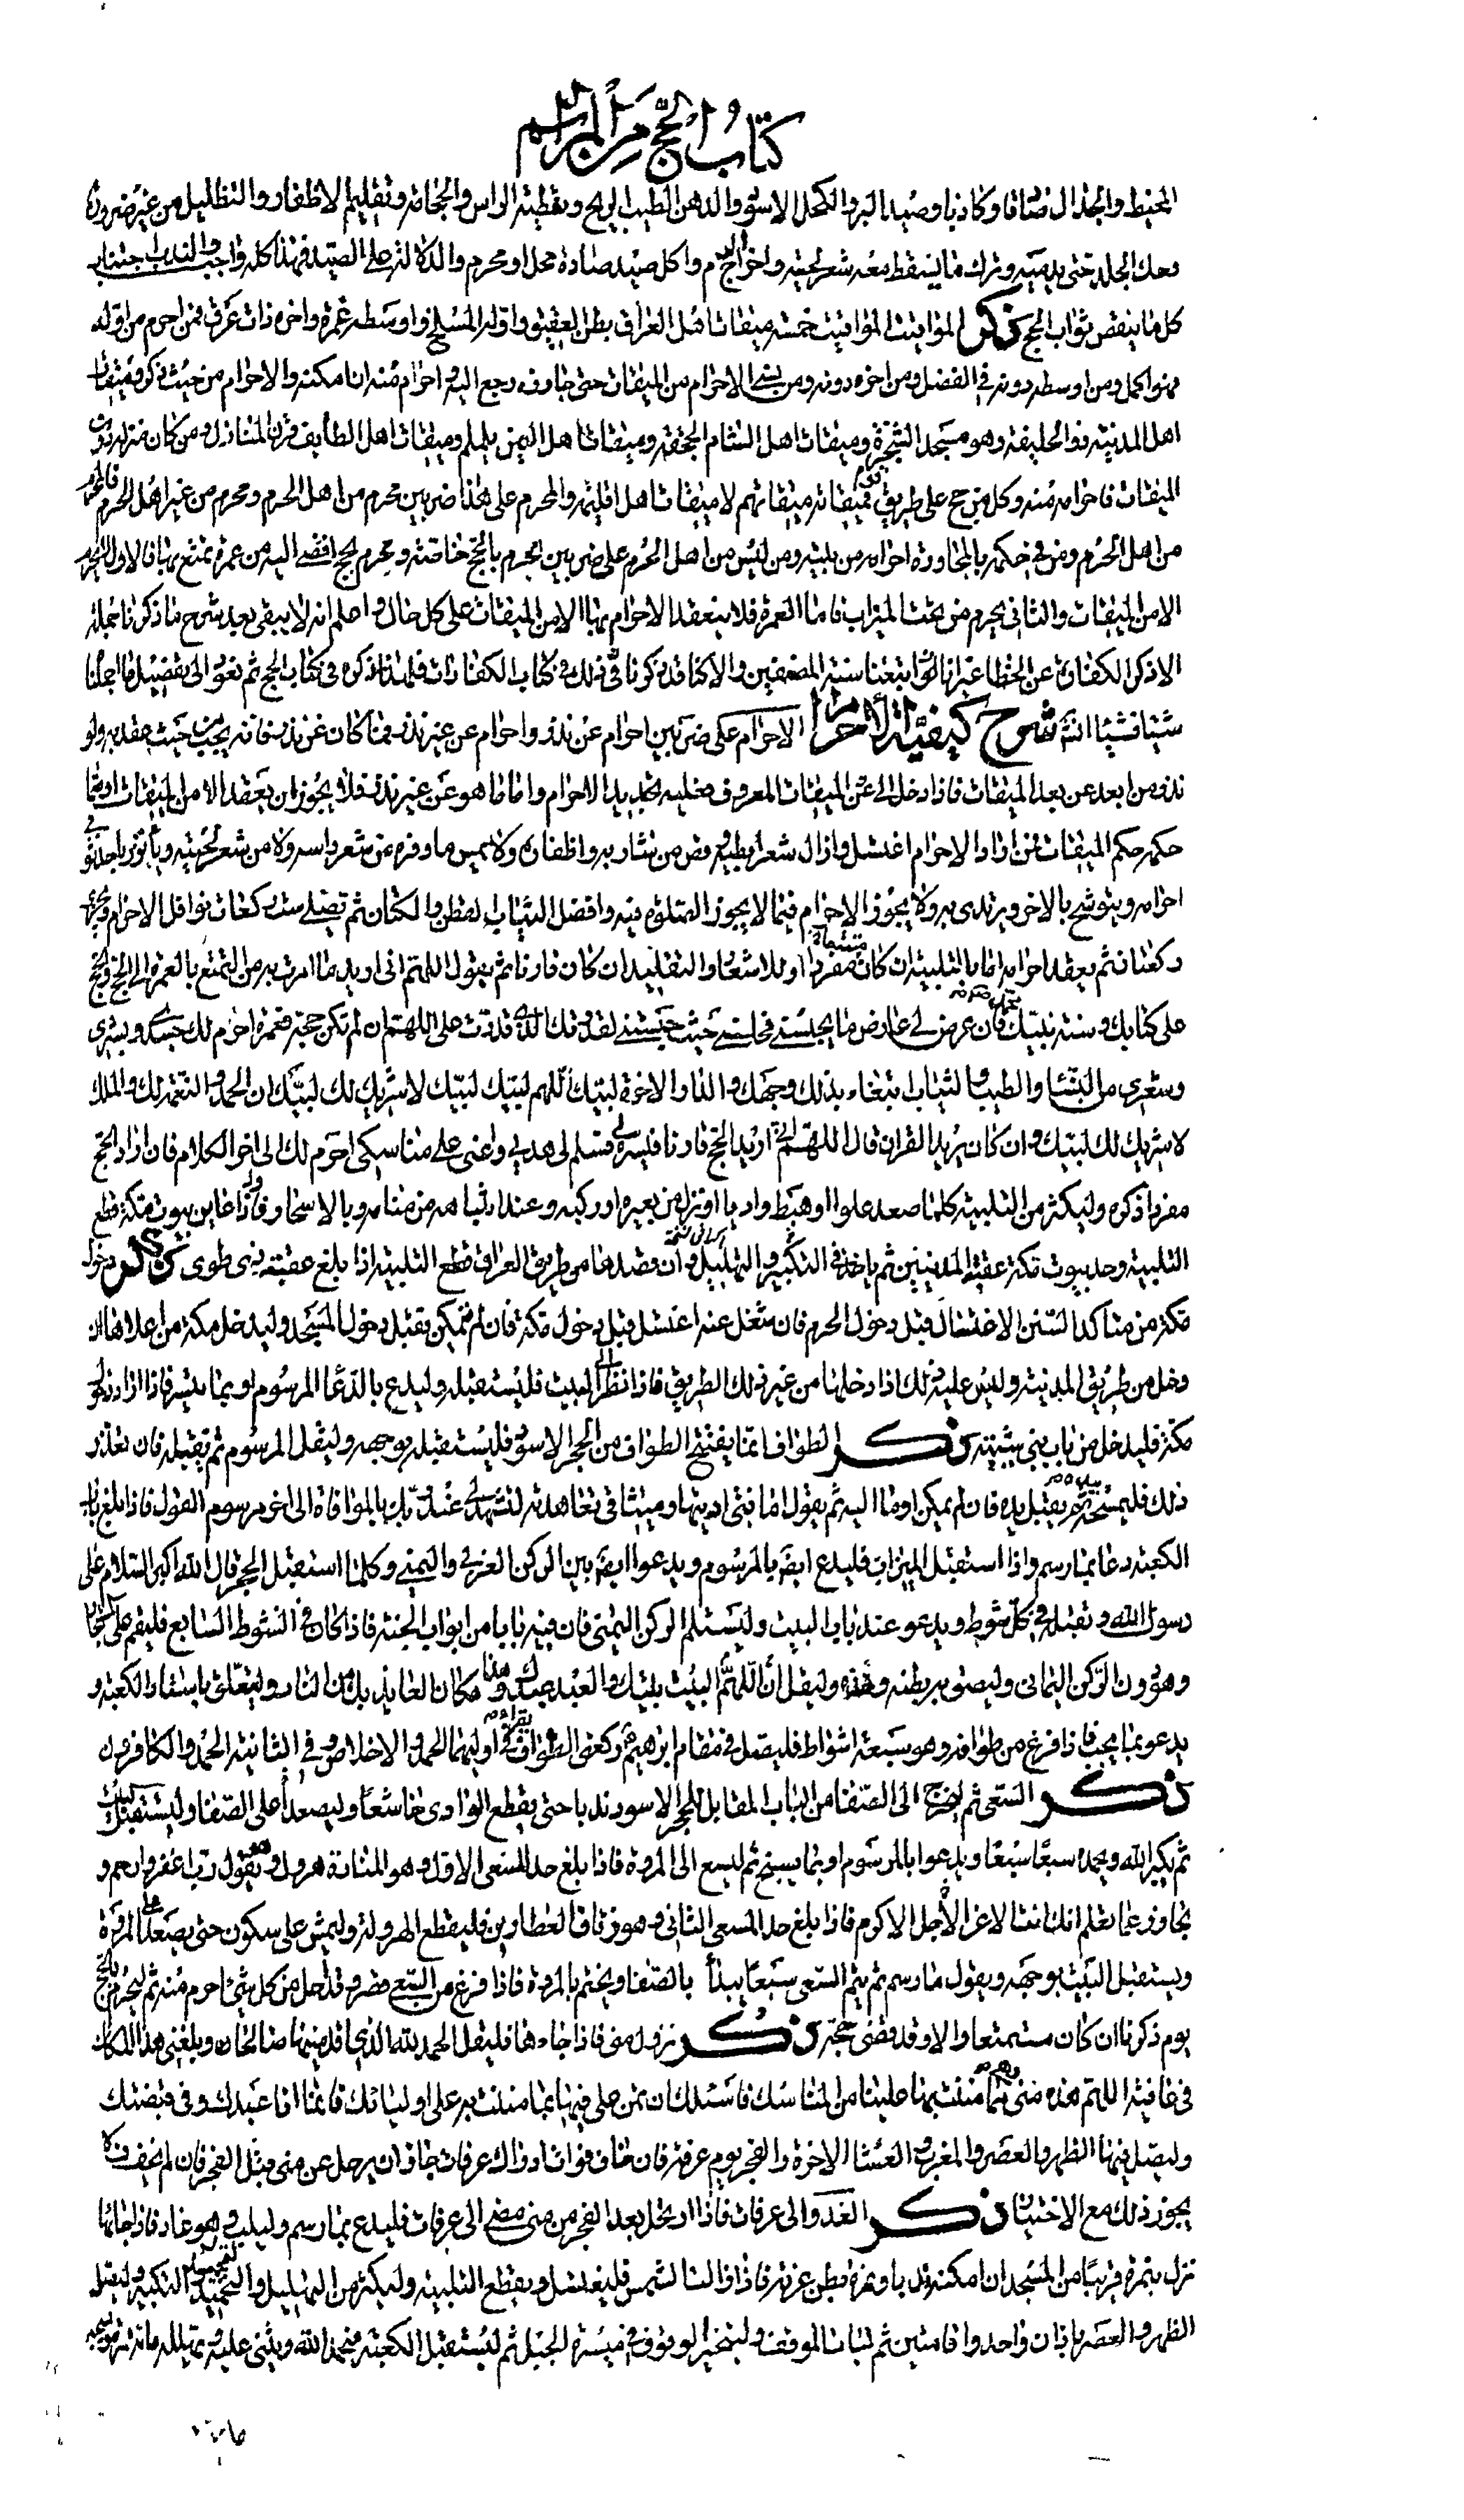 كتاب الحج من المراسم
المخيط والجدال صادقا وكاذبا وصيد البر والكحل الاسود والدهن الطيب الريح وتغطية الراس والحجامة وتقليم الاظفار والتظليل من غير ضرورة
وحك الجلد حتى يدميه وترك ما يسقط معه شعر لحيته واخراج الدم واكل صيد صاده محل او محرم والدلالة على الصيد فهذا كله واجب والندب اجتناب
كل ما ينقص ثواب الحج ذكر المواقيت المواقيت خمسة ميقات اهل العراق بطن العقيق واوله المسلخ واوسطه غمرة واخره ذات عرق فمن احرم من اوله
فهو اكمل ومن اوسطه دونه في الفضل ومن اخره دونه ومن نسي الاحرام من الميقات حتى جاوزه رجع اليه واحرام منه ان امكنه والا احرام من حيث ذكر وميقات
اهل المدينة ذو الحليفة وهو مسجد الشجرة وميقات اهل الشام الجحفة وميقات اهل اليمن يلملم وميقات اهل الطايف قرن المنازل ومن كان منزله دون
الميقات فاحرامه منه وكل من حج على طريق قوم فميقاته ميقاتهم لا ميقات اهل اقليمه والمحرم على هذا ضربين محرم من اهل الحرم ومحرم من غير اهل الحرم فالمحرم
من اهل الحرم ومن في حكمه بالمجاورة احرامه من بيته ومن ليس من اهل الحرم على ضربين محرم بالحج خاصة ومحرم لحج افضى اليه من عمرة تمتع بها فالاول لا يحرم
الا من الميقات والثاني يحرم من تحت الميزاب فاما العمرة فلا ينعقد الاحرام بها الا من الميقات على كل حال واعلم انه لا يبقى بعد شرح ما ذكرنا جملة
الا ذكر الكفارة عن الخطا غير انا لو اتبعنا سنة المصنفين والا كنا قد ذكرنا في ذلك في كتاب الكفارات فلهذا نذكره في كتاب الحج ثم نعود الى تفصيل ما اجملنا
شيئا فشيئا انشه شرح كيفية الاحرام الاحرام على ضربين احرام عن نذر واحرام عن غير نذر فما كان عن نذر فانه يجب من حيث عقد به ولو
نذر من ابعد عن بعد الميقات فاذا دخل الى عن الميقات المعروف فعليه تجديد الاحرام واما ما هو عن غير نذر فلا يجوز ان يعقد الا من الميقات او بما
حكمه حكم الميقات فمن اراد الاحرام اغتسل وازال شعر ابطيه وقص من شاربه واظفاره ولا يمس ما وفره من شعر راسه ولا من شعر لحيته وياتزر باحد ثوبي
احرامه ويتوشح بالاخر ويرتدي به ولا يجوز الاحرام فيما لا يجوز الصلوة فيه وافضل الثياب القطن والكتان ثم تصلي ست ركعات نوافل الاحرام ويجزيه
ركعتان ثم يعقد احرامه اما بالتلبية ان كان متمتعا او مفردا او بالاشعار والتقليد ان كان قارنا ثم يقول اللهم اني اريد ما امرت به من التمتع بالعمرة الى الحج والحج
على كتابك وسنة نبيك فان عرض لي عارض ما يحبسني فحلني حيث حبستني لقدرك الذي قدرت علي اللهم ان لم تكن حجة فعمرة احرم لك جسدي وبشري
وشعري من النساء والطيب والثياب ابتغاء بذلك وجهك والدار الاخرة لبيك اللهم لبيك لبيك لا شريك لك لبيك ان الحمد والنعمة لك والملك
لا شريك لك لبيك وان كان يريد القران قال اللهم اني اريد الحج قارنا فيسره لي فتسلم لي هديي واعني على مناسكي احرم لك الى اخر الكلام فان اراد الحج
مفردا ذكره وليكثر من التلبية كلما صعد علوا او هبط واديا او نزل من بعيره او ركبه وعند انتباهه من منامه وبالاسحار فاذا عاين بيوت مكة قطع
التلبية وحد بيوت مكة عقبة المدنيين ثم ياخذ في التكبير والتهليل وان قصدها من طريق العراق قطع التلبية اذا بلغ عقبة ذي طوى ذكر دخول
مكة من متاكد السنن الاغتسال قبل دخول الحرم فان شغل عنه اغتسل قبل دخول مكة فان لم يتمكن فقبل دخول المسجد وليدخل مكة من اعلاها ان
دخل من طريق المدينة وليس عليه ذلك اذا دخلها من غير ذلك الطريق فاذا نظر الى البيت فليستقبله وليدع بالدعا المرسوم او بما تيسر فاذا اراد دخول
مكة فليدخل من باب بني شيبة ذكر الطواف انما يفتتح الطواف من الحجر الاسود فليستقبله بوجهه وليقل المرسوم ثم تقبيله فان تعذر
ذلك فليمسحه بيده ثم يقبل يده فان لم يمكن اوما اليه ثم يقول امانتي اديتها وميثاقي تعاهدته لتشهد لي عند ربك بالموافاة الى اخر مرسوم القول فاذا بلغ باب
الكعبة دعا بما رسم واذا استقبل الميزاب فليدع ايضا بالمرسوم ويدعوا ايضا بين الركن الغربي واليمني وكلما استقبل الحجر قال الله اكبر السلام على
رسول الله وتقبله في كل شوط ويدعو عند باب البيت وليستلم الركن اليمنى فان فيه بابا من ابواب الجنة فاذا كان في الشوط السابع فليقم على المستجار
وهو دون الركن اليماني وليصق به بطنه وخده وليقل اللهم البيت بيتك والعبد عبدك وهذا مكان العايذ بك من النار وليتعلق باستار الكعبة و
يدعو بما يحب فاذا فرغ من طوافه وهو سبعة اشواط فليصل في مقام ابرهيم ركعتي الطواف يقرا في اوليهما الحمد والاخلاص وفي الثانية الحمد والكافرون
ذكر السعي ثم ليخرج الى الصفا من الباب المقابل للحجر الاسود ندبا حتى يقطع الوادي خاشعا وليصعد اعلى الصفا وليستقبل البيت
ثم يكبر الله ويحمده سبعا سبعا ويدعوا بالمرسوم او بما يسنح ثم ليسع الى المروة فاذا بلغ حد المسعى الاول وهو المنارة هرول وهو يقول رب اغفر وارحم و
تجاوز عما تعلم انك انت الاعز الاجل الاكرم فاذا بلغ حد المسعى الثاني وهو زقاق العطارين فليقطع الهرولة وليمش على سكون حتى يصعد على المروة
ويستقبل البيت بوجهه ويقول ما رسم ثم يتم السعي سبعا يبدأ بالصفا ويختم بالمروة فاذا فرغ من السعي قصر وقد احل من كل شئ احرم منه ثم ليحرم بالحج
يوم ذكرنا ان كان متمتعا والا وقد قضى حجه ذكر نزول منى فاذا جاءها فليقل الحمد لله الذي اقدمنيها صالحا وبلغني هذا المكان
في عافية اللهم هذه منى وهي مما مننت بها علينا من المناسك فاسئلك ان تمن علي فيها بما مننت به على اوليائك فانما انا عبدك وفي قبضتك
وليصل فيها الظهر والعصر والمغرب والعشا الاخرة والفجر يوم عرفة فان خاف فوات ادراك عرفات جاز ان يرحل عن منى قبل الفجر فان لم يخف فلا
يجوز ذلك مع الاختيار ذكر الغدو الى عرفات فاذا ارتحل بعد الفجر من منى مضى الى عرفات فليدع بما رسم وليلب وهو غاد فاذا جائها
نزل بنمرة قريبا من المسجد ان امكنه ندبا ونمرة بطن عرنة فاذا زالت الشمس فليغتسل ويقطع التلبية وليكثر من التهليل والتحميد والتكبير وليصل
الظهر والعصر باذان واحد واقامتين ثم ليات الموقف وليتخير الوقوف في ميسرة الجبل ثم ليستقبل الكعبة فيحمد الله ويثني عليه ويهلله مائة مرة